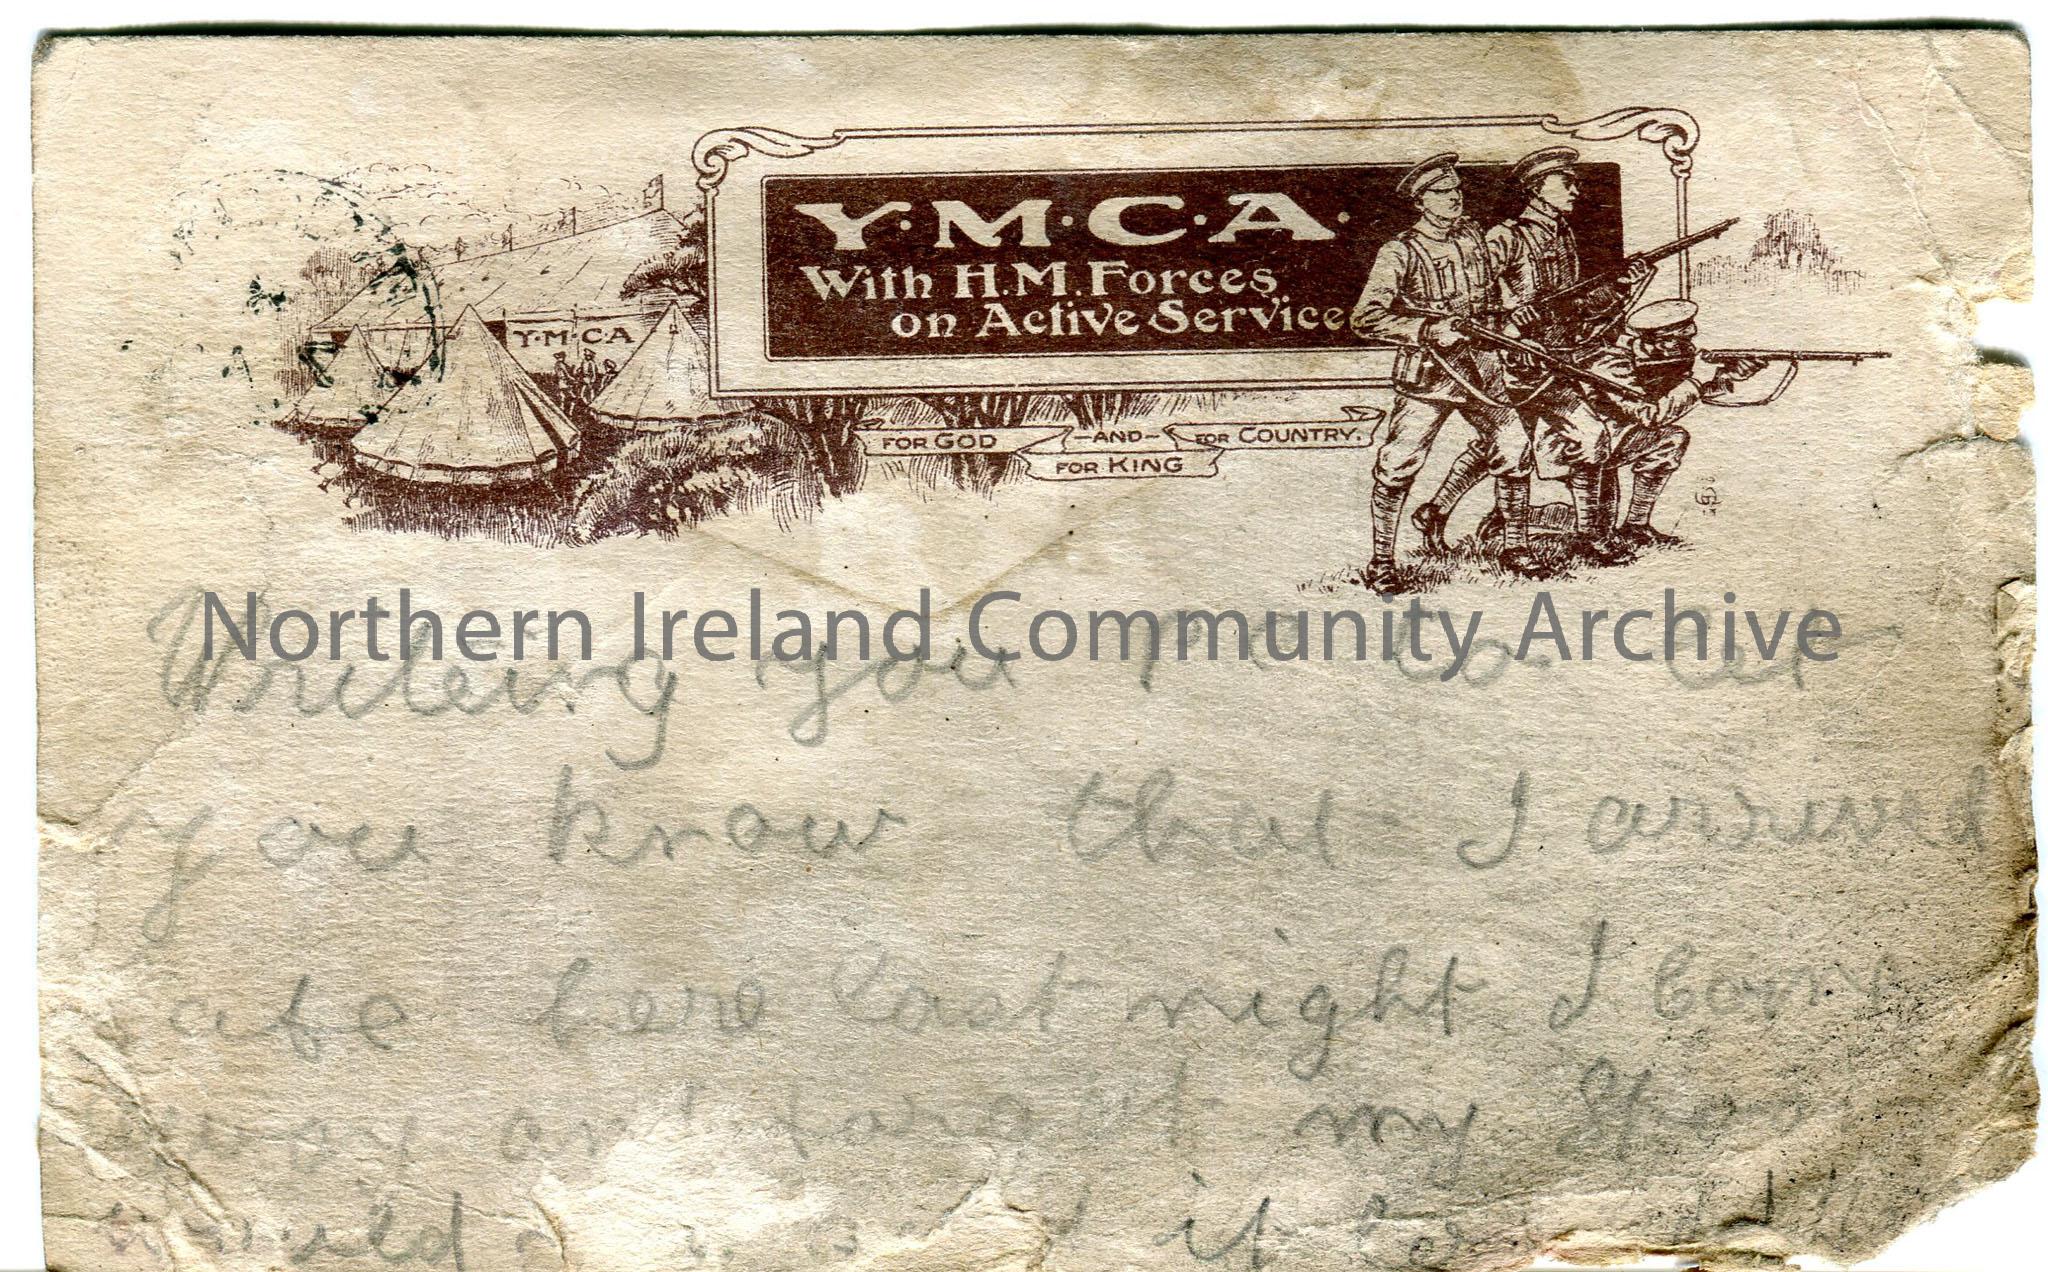 Y·M·C·A·
With H.M. Forces
on Active Service
Y·M·C·A
FOR GOD -AND- FOR COUNTRY.
FOR KING
Northern Ireland Community Archive
Writing you to let
you know that I arrived
afe here last night I
and forgot my
would it to